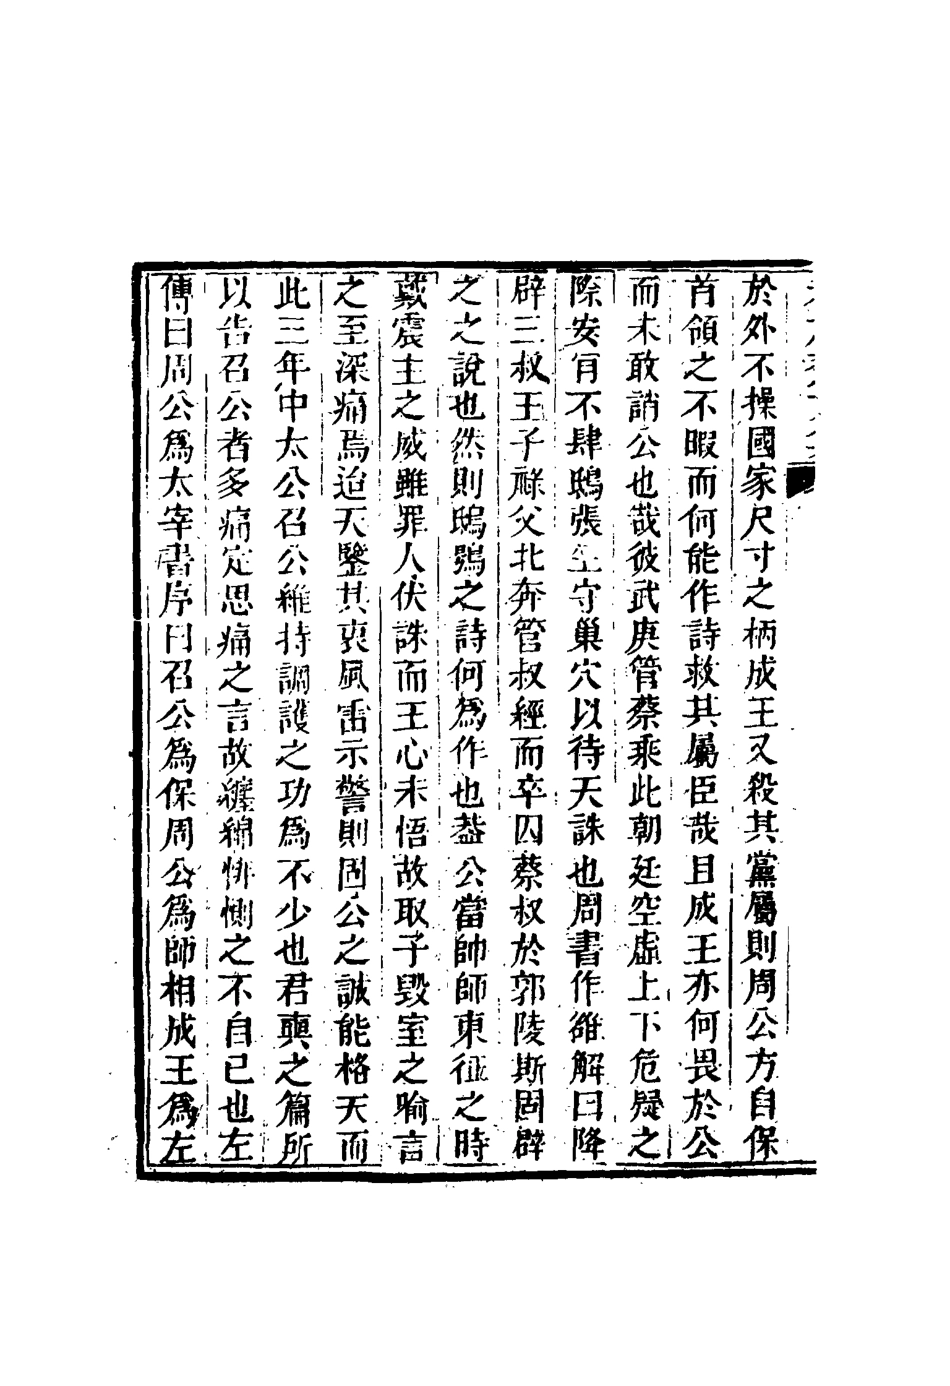 於外不操國家尺寸之柄成王又殺其黨屬則周公方自保
首領之不暇而何能作詩救其屬臣哉且成王亦何畏於公
而未敢誚公也哉彼武庚管蔡乘此朝廷空虛上下危疑之
際安肯不肆鴟張坐守巢穴以待天誅也周書作雒解曰降
辟三叔王子祿父北奔管叔經而卒囚蔡叔於郭陵斯固辟
之之說也然則鴟鴞之詩何爲作也葢公當帥師東征之時
戴震主之威雖罪人伏誅而王心未悟故取子毀室之喻言
之至深痛焉迨天鑒其衷風雷示警則固公之誠能格天而
此三年中太公召公維持調護之功爲不少也君奭之篇所
以告召公者多痛定思痛之言故纏綿悱惻之不自已也左
傳曰周公爲太宰書序曰召公爲保周公爲師相成王爲左